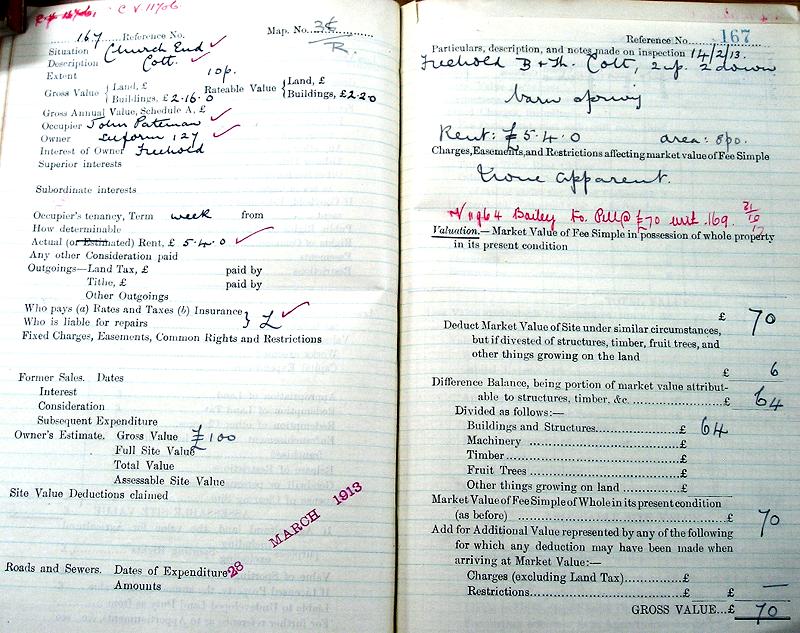 C V 11706
167 Reference No.
Map. No.
Situation Church End
Description Cott.
Extent 10p.
Gross Value { Land, £
Buildings, £2.16.0
Rateable Value { Land, £
Buildings, £2.20
Gross Annual Value, Schedule A, £
Occupier John Pateman
Owner see form 127
Interest of Owner Freehold
Superior interests
Subordinate interests
Occupier's tenancy, Term week from
How determinable
Actual (or Estimated) Rent, £ 5.4.0
Any other Consideration paid
Outgoings—Land Tax, £ paid by
Tithe, £ paid by
Other Outgoings
Who pays (a) Rates and Taxes (b) Insurance
Who is liable for repairs } L
Fixed Charges, Easements, Common Rights and Restrictions
Former Sales. Dates
Interest
Consideration
Subsequent Expenditure
Owner's Estimate. Gross Value £100
Full Site Value
Total Value
Assessable Site Value
Site Value Deductions claimed
28 MARCH 1913
Roads and Sewers. Dates of Expenditure
Amounts
Reference No. 167
Particulars, description, and notes made on inspection 14/2/13.
Freehold B + Th. Cott, 2 up. 2 down
barn
Rent: £5.4.0 area: 8po.
Charges, Easements, and Restrictions affecting market value of Fee Simple
None apparent.
Bailey to Pell @ £70 with 169.
Valuation.—Market Value of Fee Simple in possession of whole property
in its present condition
£ 70
Deduct Market Value of Site under similar circumstances,
but if divested of structures, timber, fruit trees, and
other things growing on the land
£ 6
Difference Balance, being portion of market value attribut-
able to structures, timber, &c. £ 64
Divided as follows:—
Buildings and Structures £ 64
Machinery £
Timber £
Fruit Trees £
Other things growing on land £
Market Value of Fee Simple of Whole in its present condition
(as before) £ 70
Add for Additional Value represented by any of the following
for which any deduction may have been made when
arriving at Market Value:—
Charges (excluding Land Tax) £
Restrictions £ £ —
GROSS VALUE...£ 70